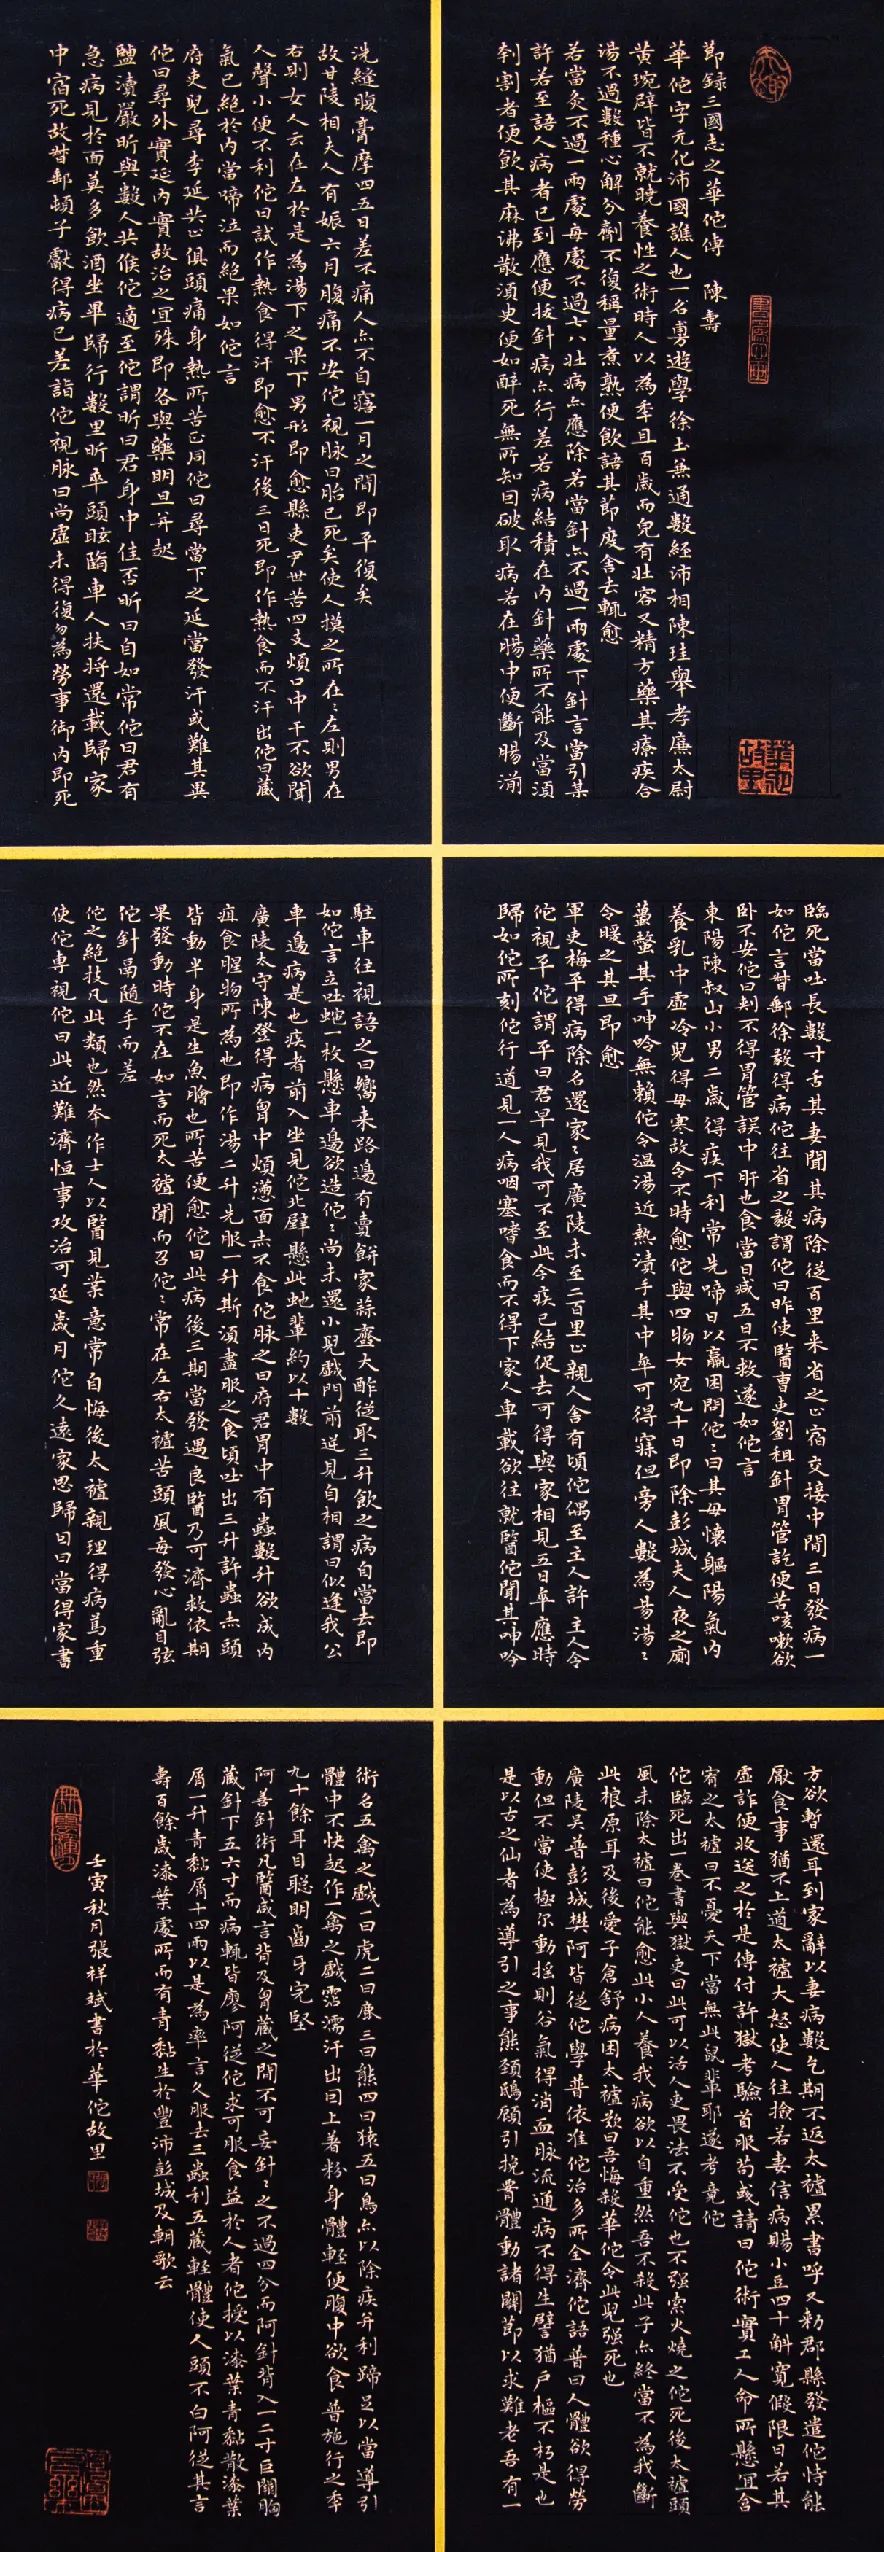 節錄三國志之華佗傳 陳壽
華佗字元化沛國譙人也一名旉遊學徐土兼通數經沛相陳珪舉孝廉太尉
黃琬辟皆不就曉養性之術時人以為季且百歲而皃有壯容又精方藥其療疾合
湯不過數種心解分劑不復稱量煮熟便飲語其節度舍去輒愈
若當灸不過一兩處每處不過七八壯病亦應除若當針亦不過一兩處下針言當引某
許若至語人病者已到應便拔針病亦行差若病結積在內針藥所不能及當須
刳割者便飲其麻沸散須臾便如醉死無所知因破取病若在腸中便斷腸湔
洗縫腹膏摩四五日差不痛人亦不自寤一月之間即平復矣
故甘陵相夫人有娠六月腹痛不安佗視脉曰胎已死矣使人摸之所在〻左則男在
右則女人云在左於是為湯下之果下男形即愈縣吏尹世苦四支煩口中干不欲聞
人聲小便不利佗曰試作熱食得汗即愈不汗後三日死即作熱食而不汗出佗曰藏
氣已絕於內當啼泣而絕果如佗言
府吏兒尋李延共止俱頭痛身熱所苦正同佗曰尋當下之延當發汗或難其異
佗曰尋外實延內實故治之宜殊即各與藥明旦并起
鹽瀆嚴昕與數人共候佗適至佗謂昕曰君身中佳否昕曰自如常佗曰君有
急病見於面莫多飲酒坐畢歸行數里昕卒頭眩墮車人扶將還載歸家
中宿死故督郵頓子獻得病已差詣佗視脉曰尚虛未得復勿為勞事御內即死
臨死當吐長數寸舌其妻聞其病除從百里来省之止宿交接中間三日發病一
如佗言督郵徐毅得病佗往省之毅謂佗曰昨使醫曹吏劉租針胃管訖便苦咳嗽欲
卧不安佗曰刺不得胃管誤中肝也食當日減五日不救遂如佗言
東陽陳叔山小男二歲得疾下利常先啼日以羸困問佗〻曰其母懷軀陽氣內
養乳中虛冷兒得母寒故令不時愈佗與四物女宛丸十日即除彭城夫人夜之廁
蠆螫其手呻吟無賴佗令溫湯近熱漬手其中卒可得寐但旁人數為易湯〻
令暖之其旦即愈
軍吏梅平得病除名還家〻居廣陵未至二百里止親人舍有頃佗偶至主人許主人令
佗視平佗謂平曰君早見我可不至此今疾已結促去可得與家相見五日卒應時
歸如佗所刻佗行道見一人病咽塞嗜食而不得下家人車載欲往就醫佗聞其呻吟
駐車往視語之曰嚮来路邊有賣餅家蒜齏大酢從取三升飲之病自當去即
如佗言立吐蛇一枚懸車邊欲造佗〻尚未還小兒戲門前逆見自相謂曰似逢我公
車邊病是也疾者前入坐見佗北壁懸此虵輩約以十數
廣陵太守陳登得病胷中煩懣面赤不食佗脉之曰府君胃中有蟲數升欲成內
疽食腥物所為也即作湯二升先服一升斯須盡服之食頃吐出三升許蟲赤頭
皆動半身是生魚膾也所苦便愈佗曰此病後三期當發遇良醫乃可濟救依期
果發動時佗不在如言而死太祖聞而召佗〻常在左右太祖苦頭風每發心亂目弦
佗針鬲隨手而差
佗之絕技凡此類也然本作士人以醫見業意常自悔後太祖親理得病萬重
使佗專視佗曰此近難濟恒事攻治可延歲月佗久遠家思歸因曰當得家書
方欲暫還耳到家辭以妻病數乞期不返太祖累書呼又勑郡縣發遣佗恃能
厭食事猶不上道太祖大怒使人往撿若妻信病賜小豆四十斛寬假限日若其
虛詐便收送之於是傳付許獄考驗首服荀彧請曰佗術實工人命所懸宜含
宥之太祖曰不憂天下當無此鼠輩耶遂考竟佗
佗臨死出一卷書與獄吏曰此可以活人吏畏法不受佗也不强索火燒之佗死後太祖頭
風未除太祖曰佗能愈此小人養我病欲以自重然吾不殺此子亦終當不為我斷
此根原耳及後愛子倉舒病困太祖歎曰吾悔殺華佗令此兒强死也
廣陵吴普彭城樊阿皆從佗學普依准佗治多所全濟佗語普曰人體欲得勞
動但不當使極尔動搖則谷氣得消血脉流通病不得生譬猶户樞不朽是也
是以古之仙者為導引之事熊頚鴟顧引挽胥體動諸關節以求難老吾有一
術名五禽之戲一曰虎二曰鹿三曰熊四曰猿五曰鳥亦以除疾并利蹄足以當導引
體中不快起作一禽之戲霑濡汗出因上著粉身體輕便腹中欲食普施行之季
九十餘耳目聰明齒牙完堅
阿善針術凡醫咸言背及胷藏之間不可妄針〻之不過四分而阿針背入一二寸巨闕胸
藏針下五六寸而病輒皆廖阿從佗求可服食益於人者佗授以漆葉青黏散漆葉
屑一升青黏屑十四兩以是為率言久服去三蟲利五藏輕體使人頭不白阿從其言
壽百餘歲漆葉處所而有青黏生於豐沛彭城及朝歌云
壬寅秋月張祥斌書於華佗故里
華佗故里